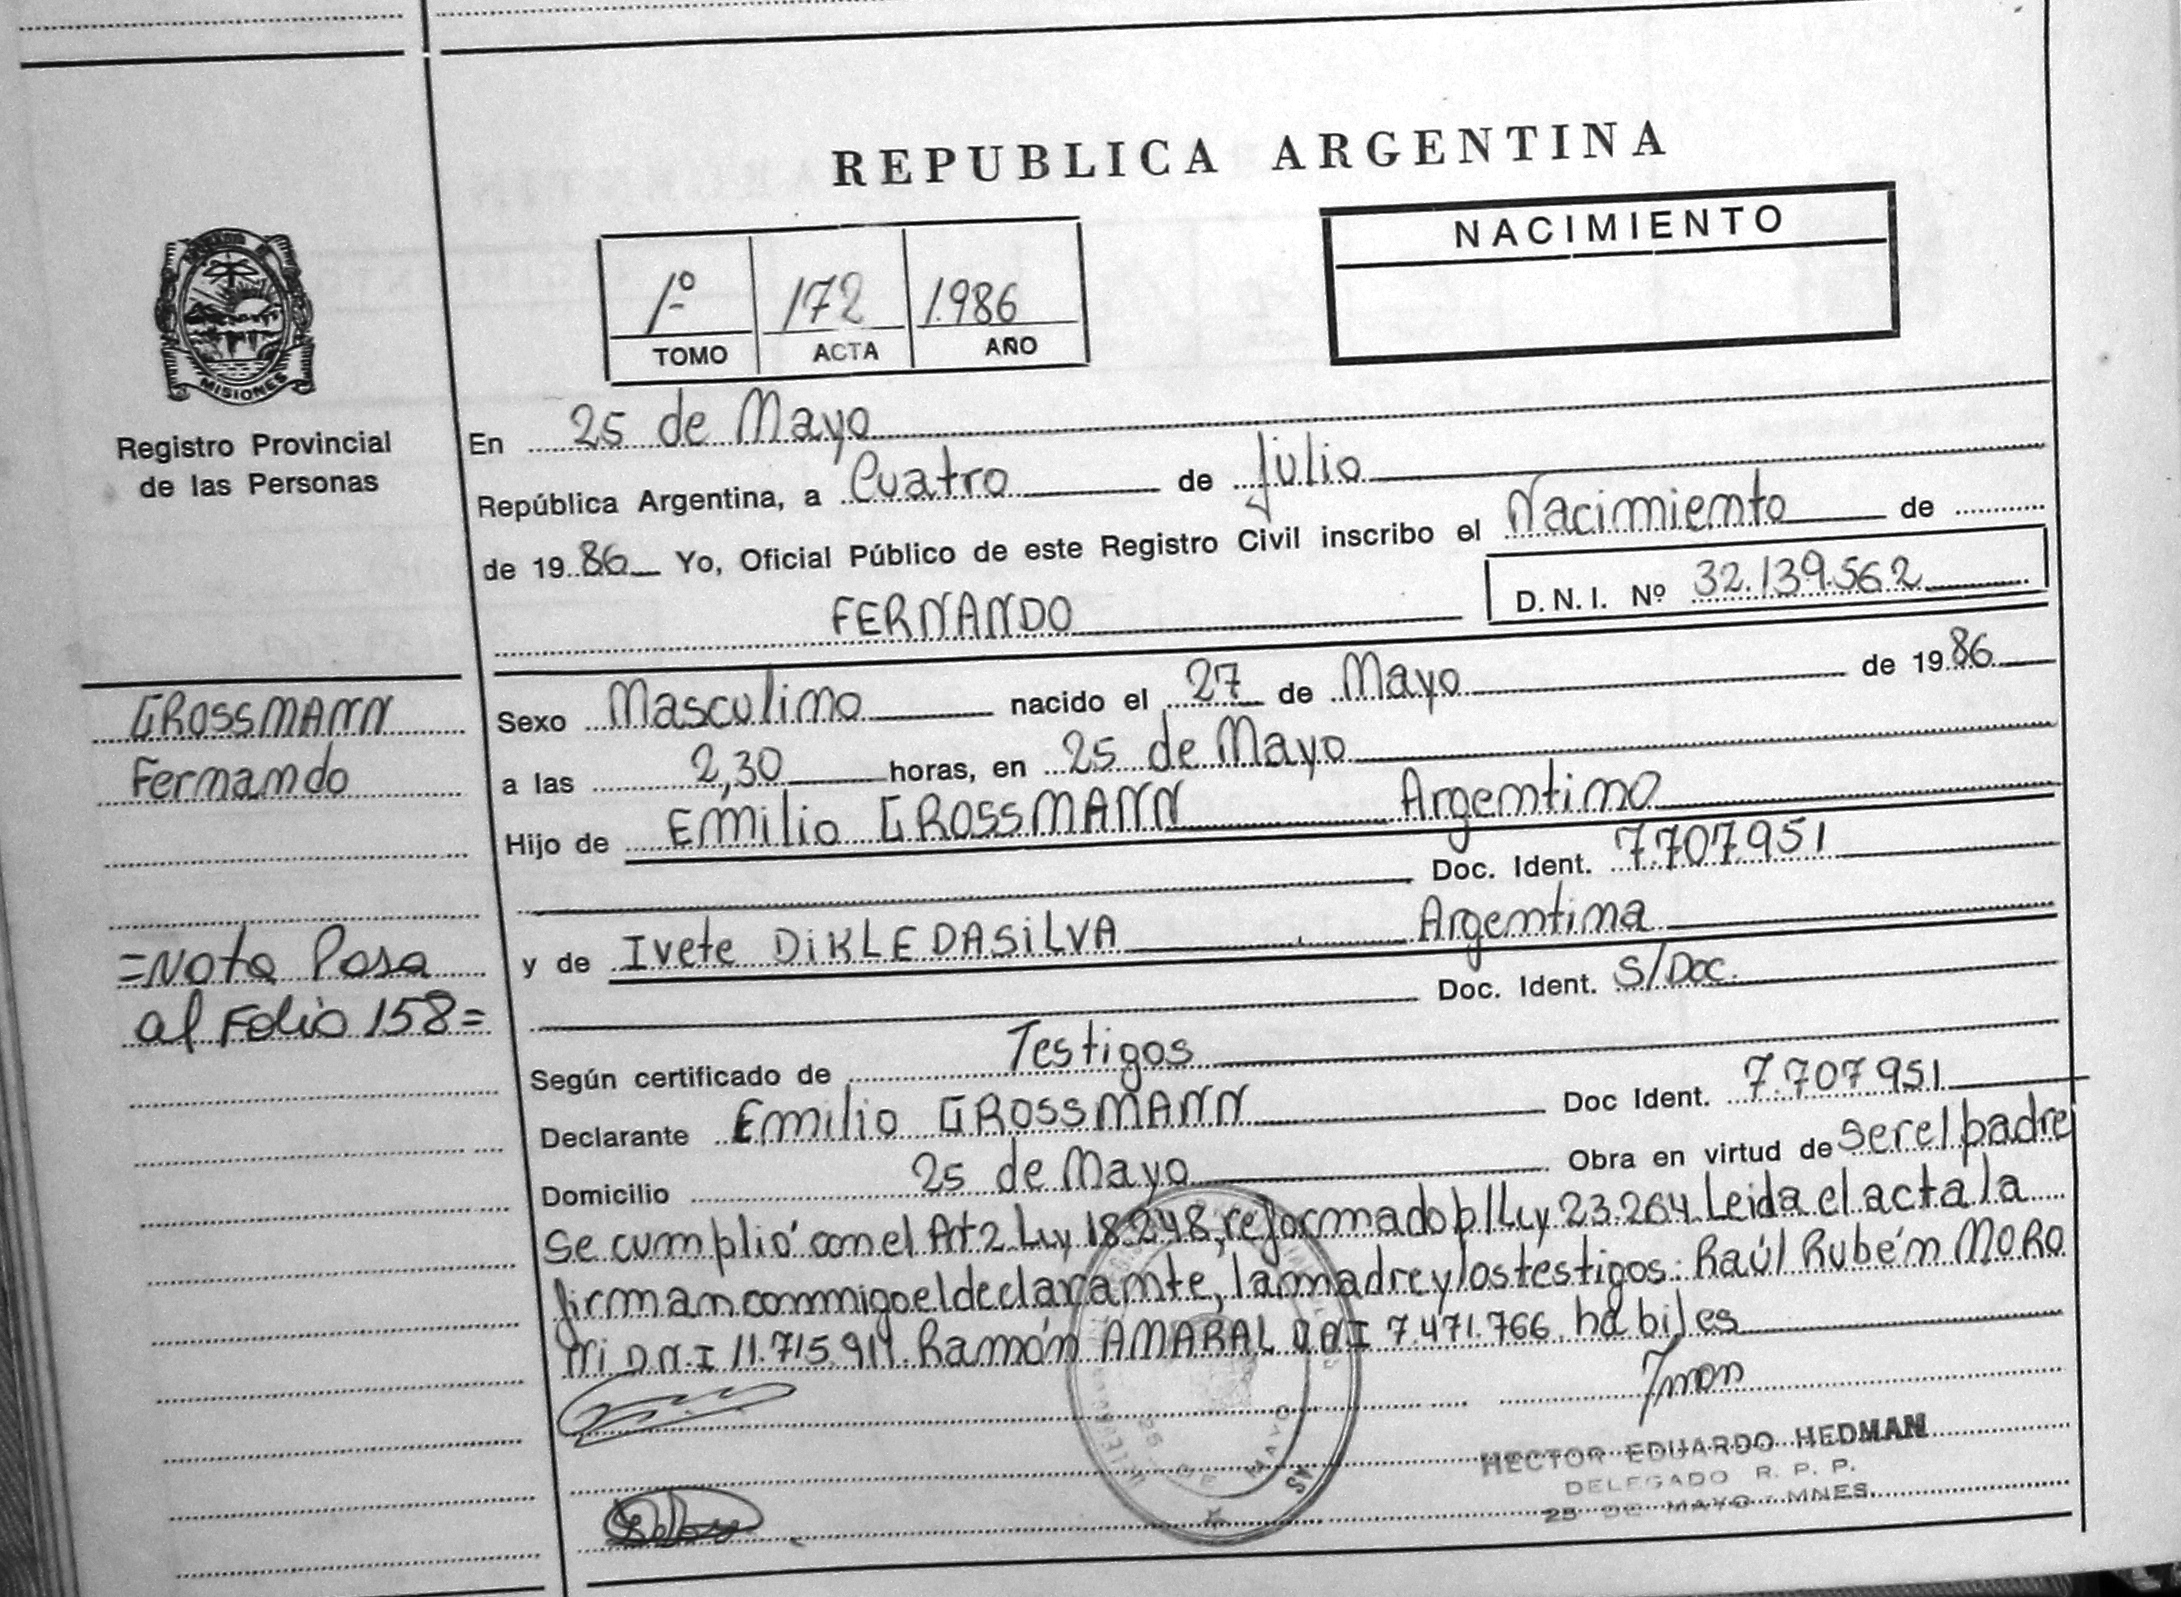 REPUBLICA ARGENTINA
NACIMIENTO
1º 172 1.986
TOMO ACTA AÑO
MISIONES
Registro Provincial
de las Personas
En 25 de Mayo
República Argentina, a Cuatro de Julio
de 1986 Yo, Oficial Público de este Registro Civil inscribo el Nacimiento de
FERNANDO D.N.I. Nº 32.139.562
GROSSMANN
Fernando
=Nota Pasa
al Folio 158=
Sexo Masculino nacido el 27 de Mayo de 1986
a las 2,30 horas, en 25 de Mayo
Hijo de Emilio GROSSMANN Argentino
Doc. Ident. 7.707.951
y de Ivete DIKLE DASILVA Argentina
Doc. Ident. S/Doc.
Según certificado de Testigos
Declarante Emilio GROSSMANN Doc Ident. 7.707.951
Domicilio 25 de Mayo Obra en virtud de ser el padre
Se cumplió con el Art 2 Ley 18.248, reformado p/ley 23.264. Leida el acta la
firman conmigo el declarante, la madre y los testigos: Raúl Rubén MORO
D.N.I 11.715.911. Ramón AMARAL D.N.I 7.471.766. hábiles
HECTOR EDUARDO HEDMAN
DELEGADO R. P. P.
25 DE MAYO - MNES.
25 DE MAYO